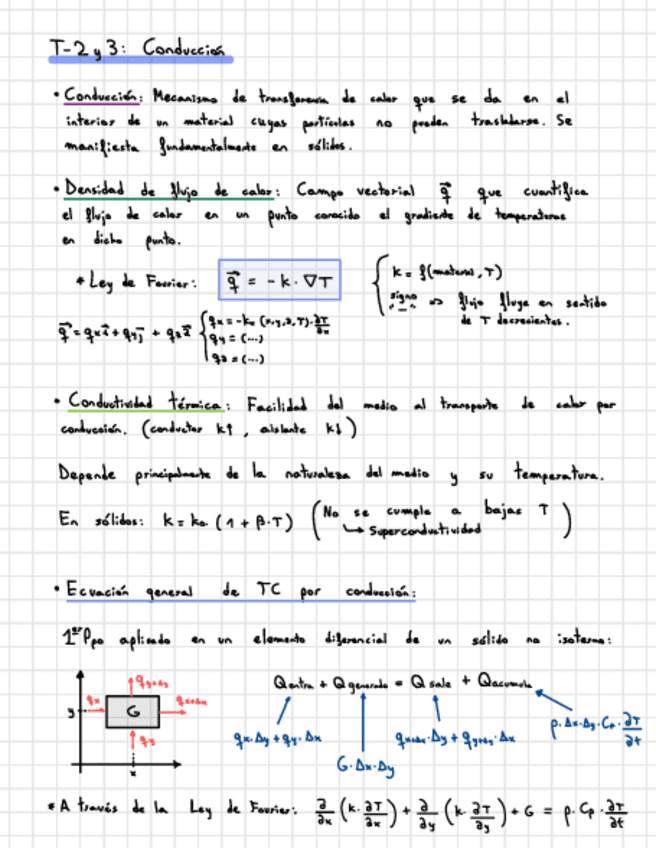 T-2 y 3: Conducción
• Conducción: Mecanismo de transferencia de calor que se da en el
interior de un material cuyas partículas no pueden trasladarse. Se
manifiesta fundamentalmente en sólidos.
• Densidad de flujo de calor: Campo vectorial q⃗ que cuantifica
el flujo de calor en un punto conocido el gradiente de temperaturas
en dicho punto.
* Ley de Fourier: q⃗ = -k · ∇T { k = f(material, T)
signo "-" => flujo fluye en sentido
de T decrecientes.
q⃗ = qx i⃗ + qy j⃗ + qz k⃗ { qx = -kx (x,y,z,T) · ∂T/∂x
qy = (...)
qz = (...)
• Conductividad térmica: Facilidad del medio al transporte de calor por
conducción. (conductor k↑, aislante k↓)
Depende principalmente de la naturaleza del medio y su temperatura.
En sólidos: k = k₀ · (1 + β·T) (No se cumple a bajas T
↳ Superconductividad)
• Ecuación general de TC por conducción:
1er Ppo aplicado en un elemento diferencial de un sólido no isotermo:
Qentra + Qgenerado = Qsale + Qacumula
y qx G qx+Δx qy+Δy qy x
qx·Δy + qy·Δx
G·Δx·Δy
qx+Δx·Δy + qy+Δy·Δx
ρ·Δx·Δy·Cp·∂T/∂t
* A través de la Ley de Fourier: ∂/∂x (k·∂T/∂x) + ∂/∂y (k·∂T/∂y) + G = ρ·Cp·∂T/∂t